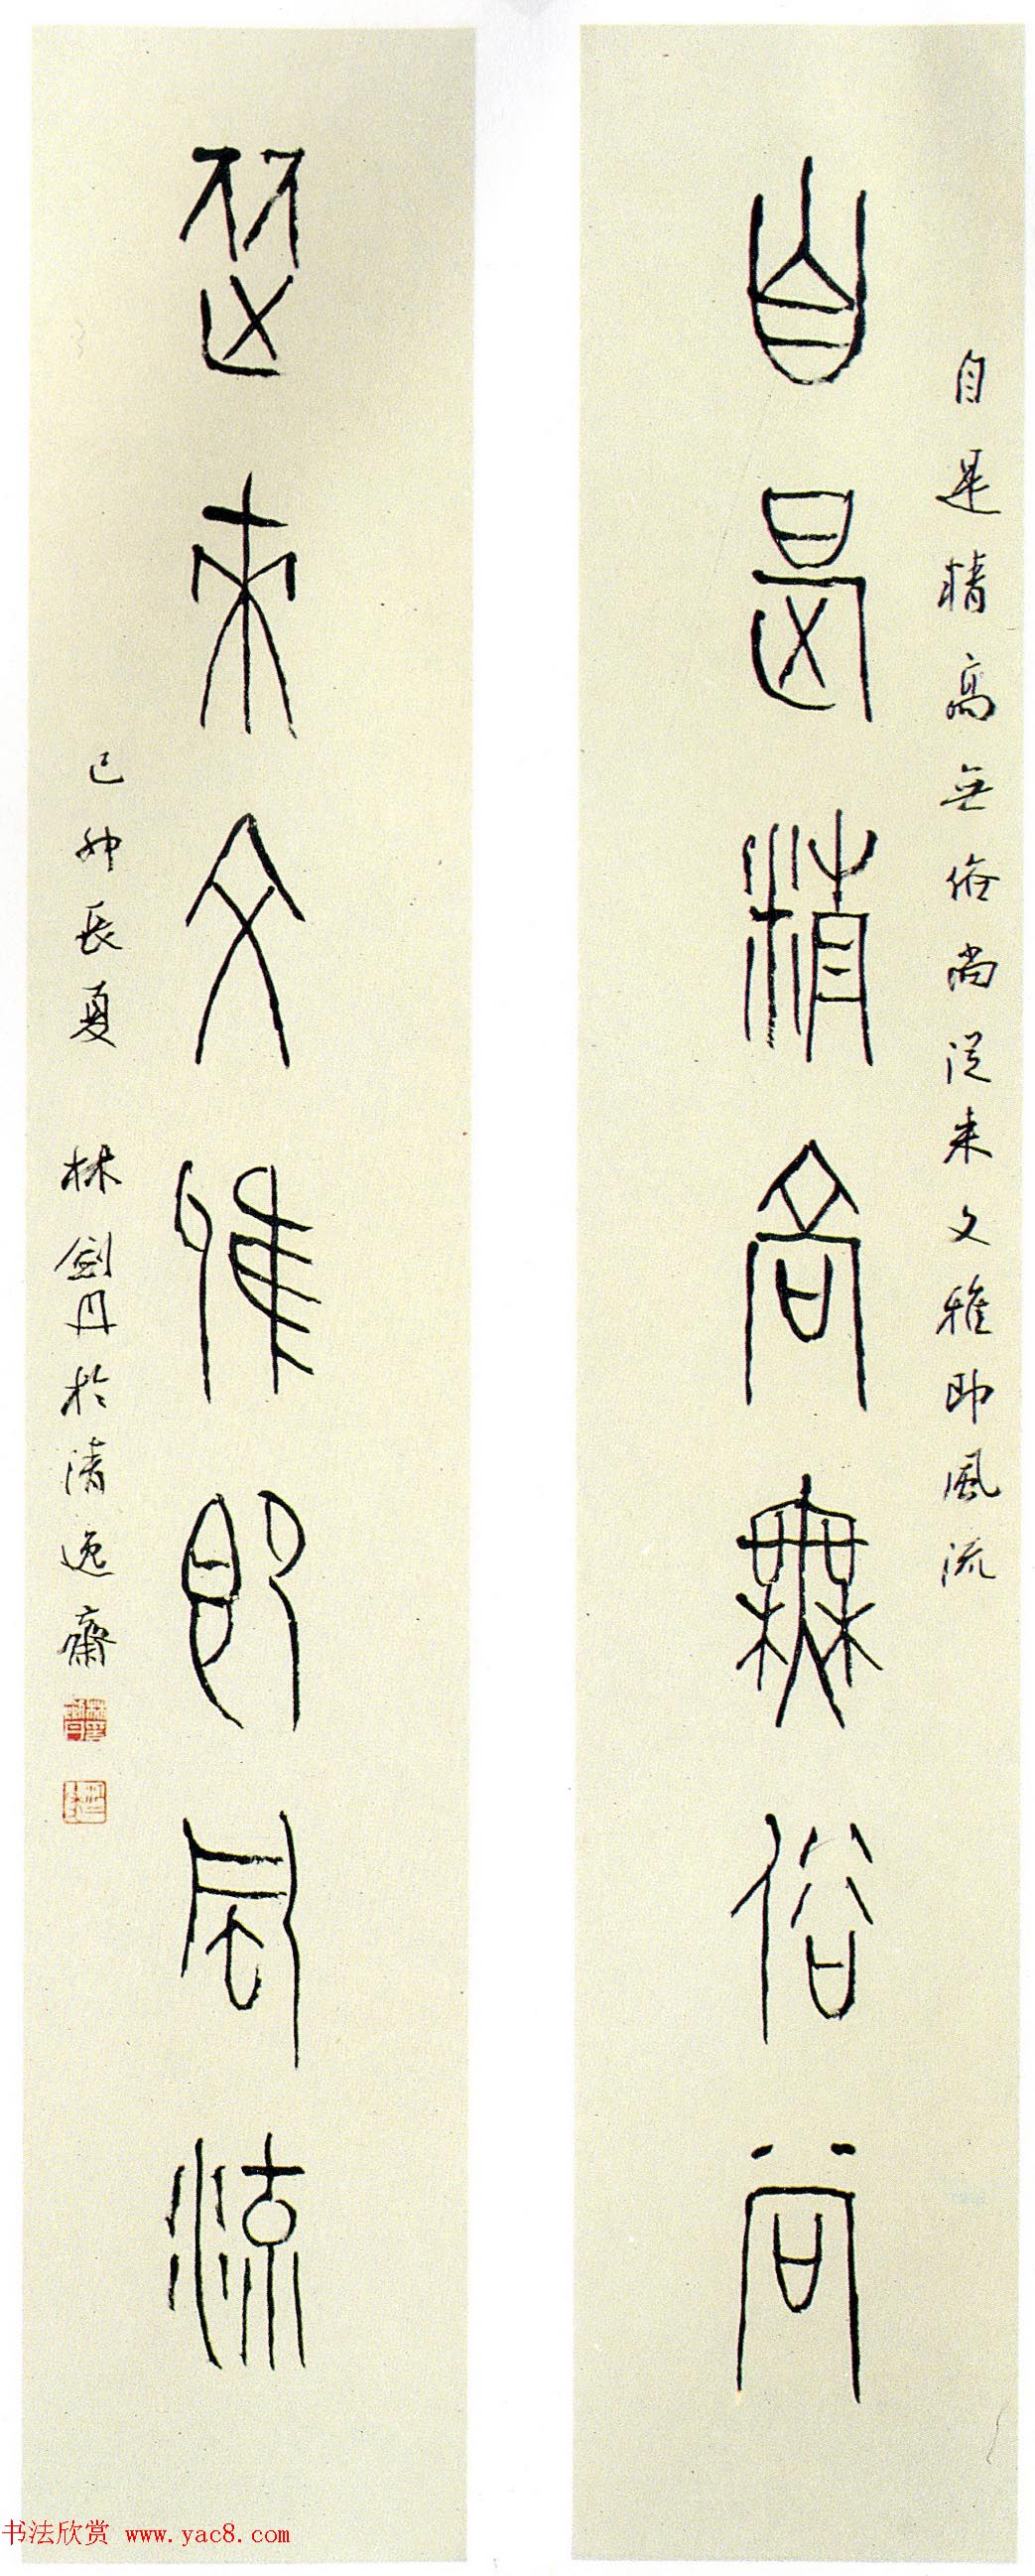 自是清高无俗尚從来文雅即風流
自是清高無俗尚
從來文雅即風流
己卯長夏 林劍丹於清逸齋
书法欣赏 www.yac8.com